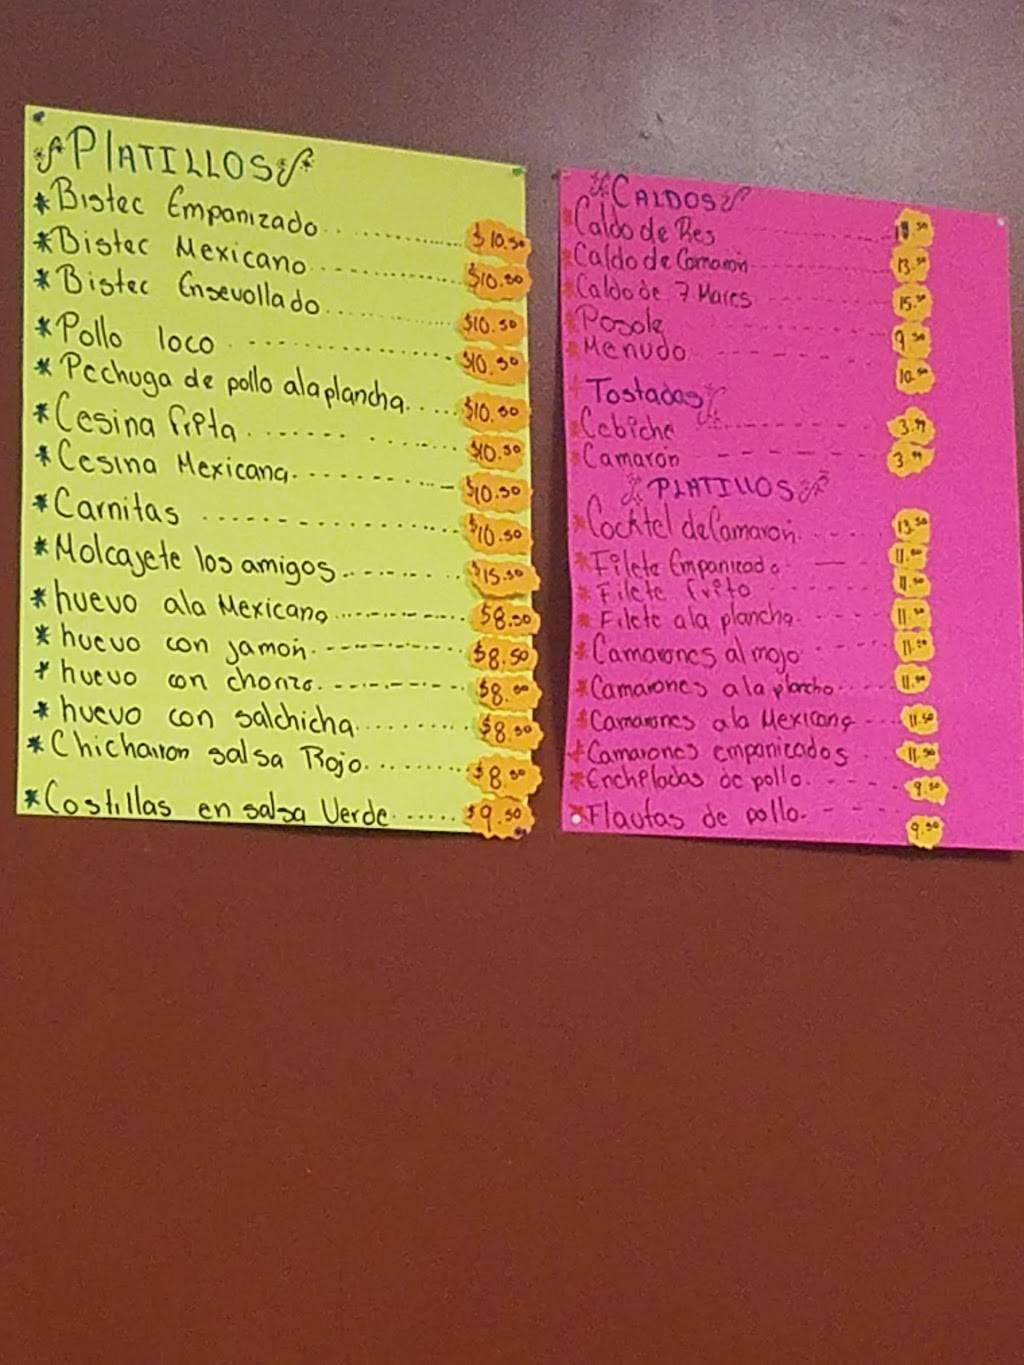 PlATILLOS
* Bistec Empanizado ........... $10.50
* Bistec Mexicano ........... $10.50
* Bistec Ensevollado ........... $10.50
* Pollo loco ........... $10.50
* Pechuga de pollo ala plancha. .... $10.50
* Cesina frita ........... $10.50
* Cesina Mexicana. ........... $10.50
* Carnitas ........... $10.50
* Molcajete los amigos ........... $15.50
* huevo ala Mexicana ........... $8.50
* huevo con jamón. ........... $8.50
* huevo con chorizo. ........... $8.50
* huevo con salchicha ........... $8.50
* Chicharron salsa Rojo ........... $8.50
* Costillas en salsa Verde ...... $9.50
CALDOS
* Caldo de Res
* Caldo de Camarón ........... 13.50
* Caldo de 7 Mares ........... 15.50
* Posole ........... 9.50
* Menudo ........... 10.50
Tostadas
* Cebiche ........... 3.99
* Camaron ........... 3.99
PLATILLOS
* Cocktel de Camaron ........... 13.50
* Filete Empanizado ........... 11.50
* Filete frito ........... 11.50
* Filete ala plancha ........... 11.50
* Camarones al mojo ........... 11.50
* Camarones ala plancha ........... 11.50
* Camarones ala Mexicana ........... 11.50
* Camarones empanizados ........... 11.50
* Enchiladas de pollo ........... 9.50
* Flautas de pollo. ........... 9.50